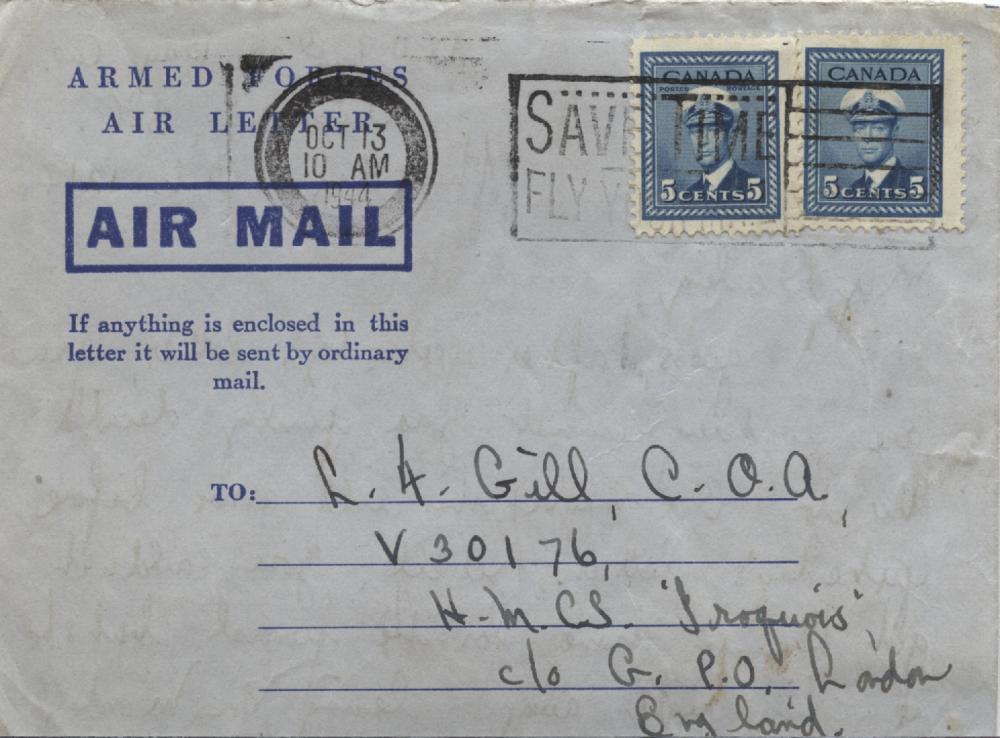 ARMED FORCES
AIR LETTER
OCT 13
10 AM
1944
AIR MAIL
If anything is enclosed in this
letter it will be sent by ordinary
mail.
SAVE TIME
FLY
CANADA
POSTES POSTAGE
5 CENTS 5
CANADA
5 CENTS 5
TO: L. A. Gill, C.O.A,
V30176,
H.M.C.S. "Iroquois",
c/o G.P.O. London
England.